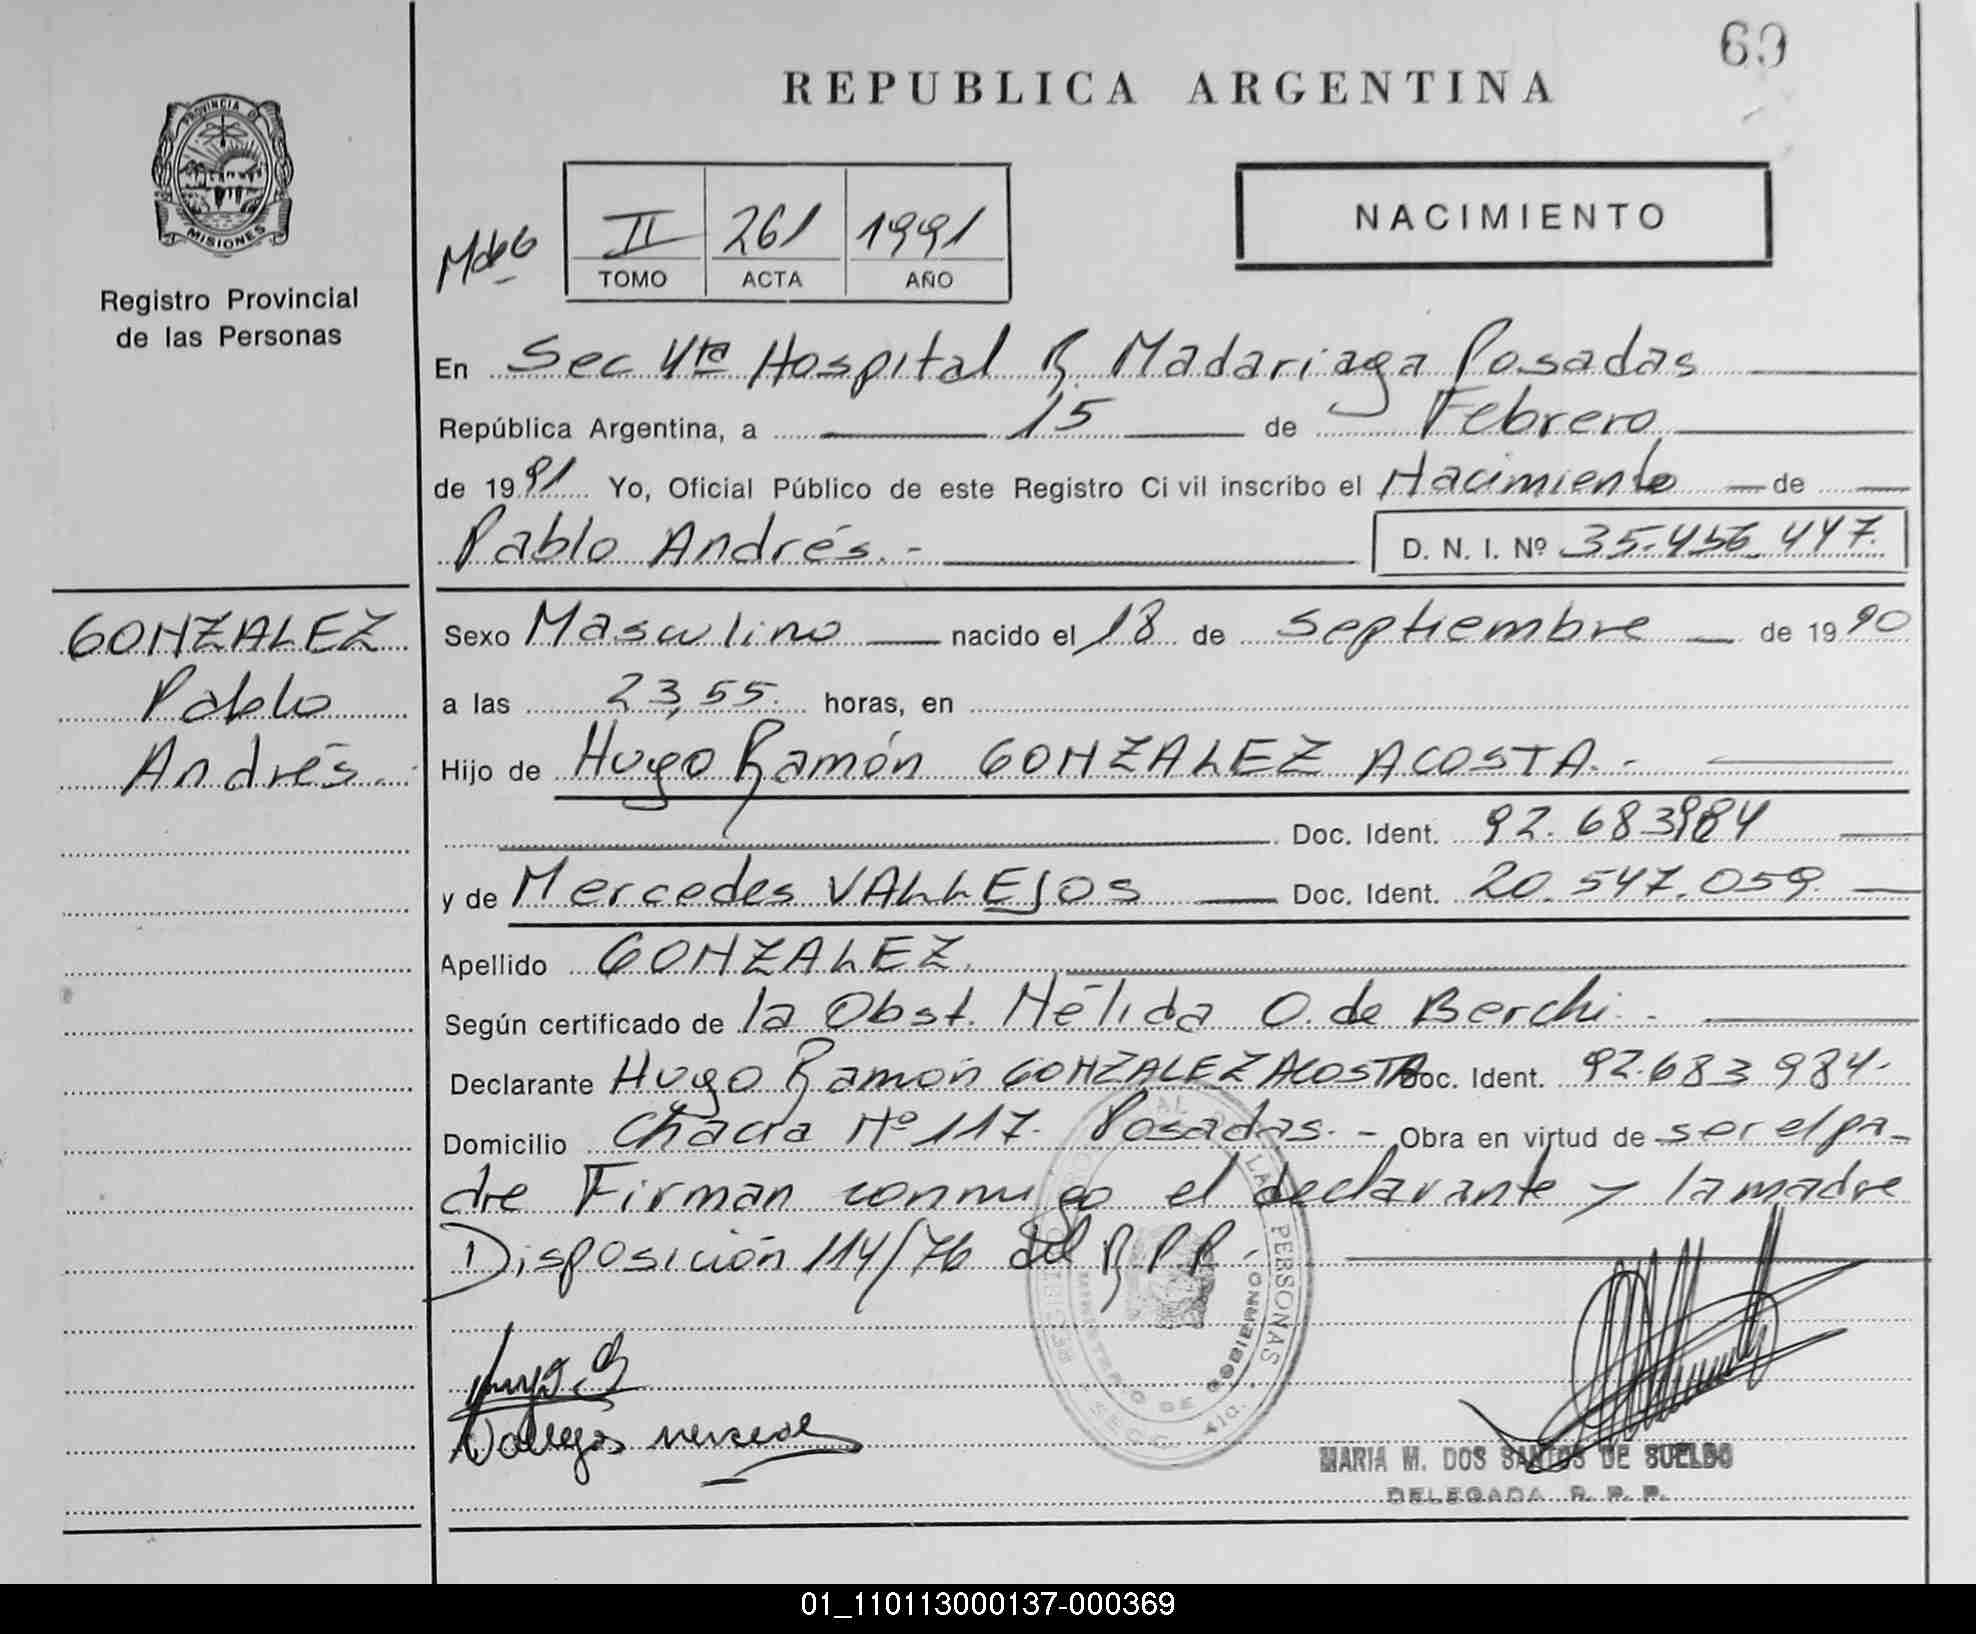 69
REPUBLICA ARGENTINA
PROVINCIA DE
MISIONES
Registro Provincial
de las Personas
II 261 1991
TOMO ACTA AÑO
NACIMIENTO
En Sec 4ta Hospital R. Madariaga Posadas
República Argentina, a 15 de Febrero
de 1991 Yo, Oficial Público de este Registro Civil inscribo el Nacimiento de
Pablo Andrés.- D. N. I. Nº 35.456.447.
GONZALEZ
Pablo
Andrés.
Sexo Masculino nacido el 18 de Septiembre de 1990
a las 23,55. horas, en
Hijo de Hugo Ramón GONZALEZ ACOSTA.-
Doc. Ident. 92.683984
y de Mercedes VALLEJOS Doc. Ident. 20.547.059.
Apellido GONZALEZ.
Según certificado de la Obst. Nélida O. de Berchi.-
Declarante Hugo Ramón GONZALEZ ACOSTA Doc. Ident. 92.683 984.
Domicilio Chacra Nº 117. Posadas.- Obra en virtud de ser el pa-
dre Firman conmigo el declarante y la madre
Disposición 114/76 del R.P.P.
PERSONAS
MINISTERIO DE GOBIERNO
Vallejos
MARIA M. DOS SANTOS DE SUELDO
DELEGADA R. P. P.
01_110113000137-000369